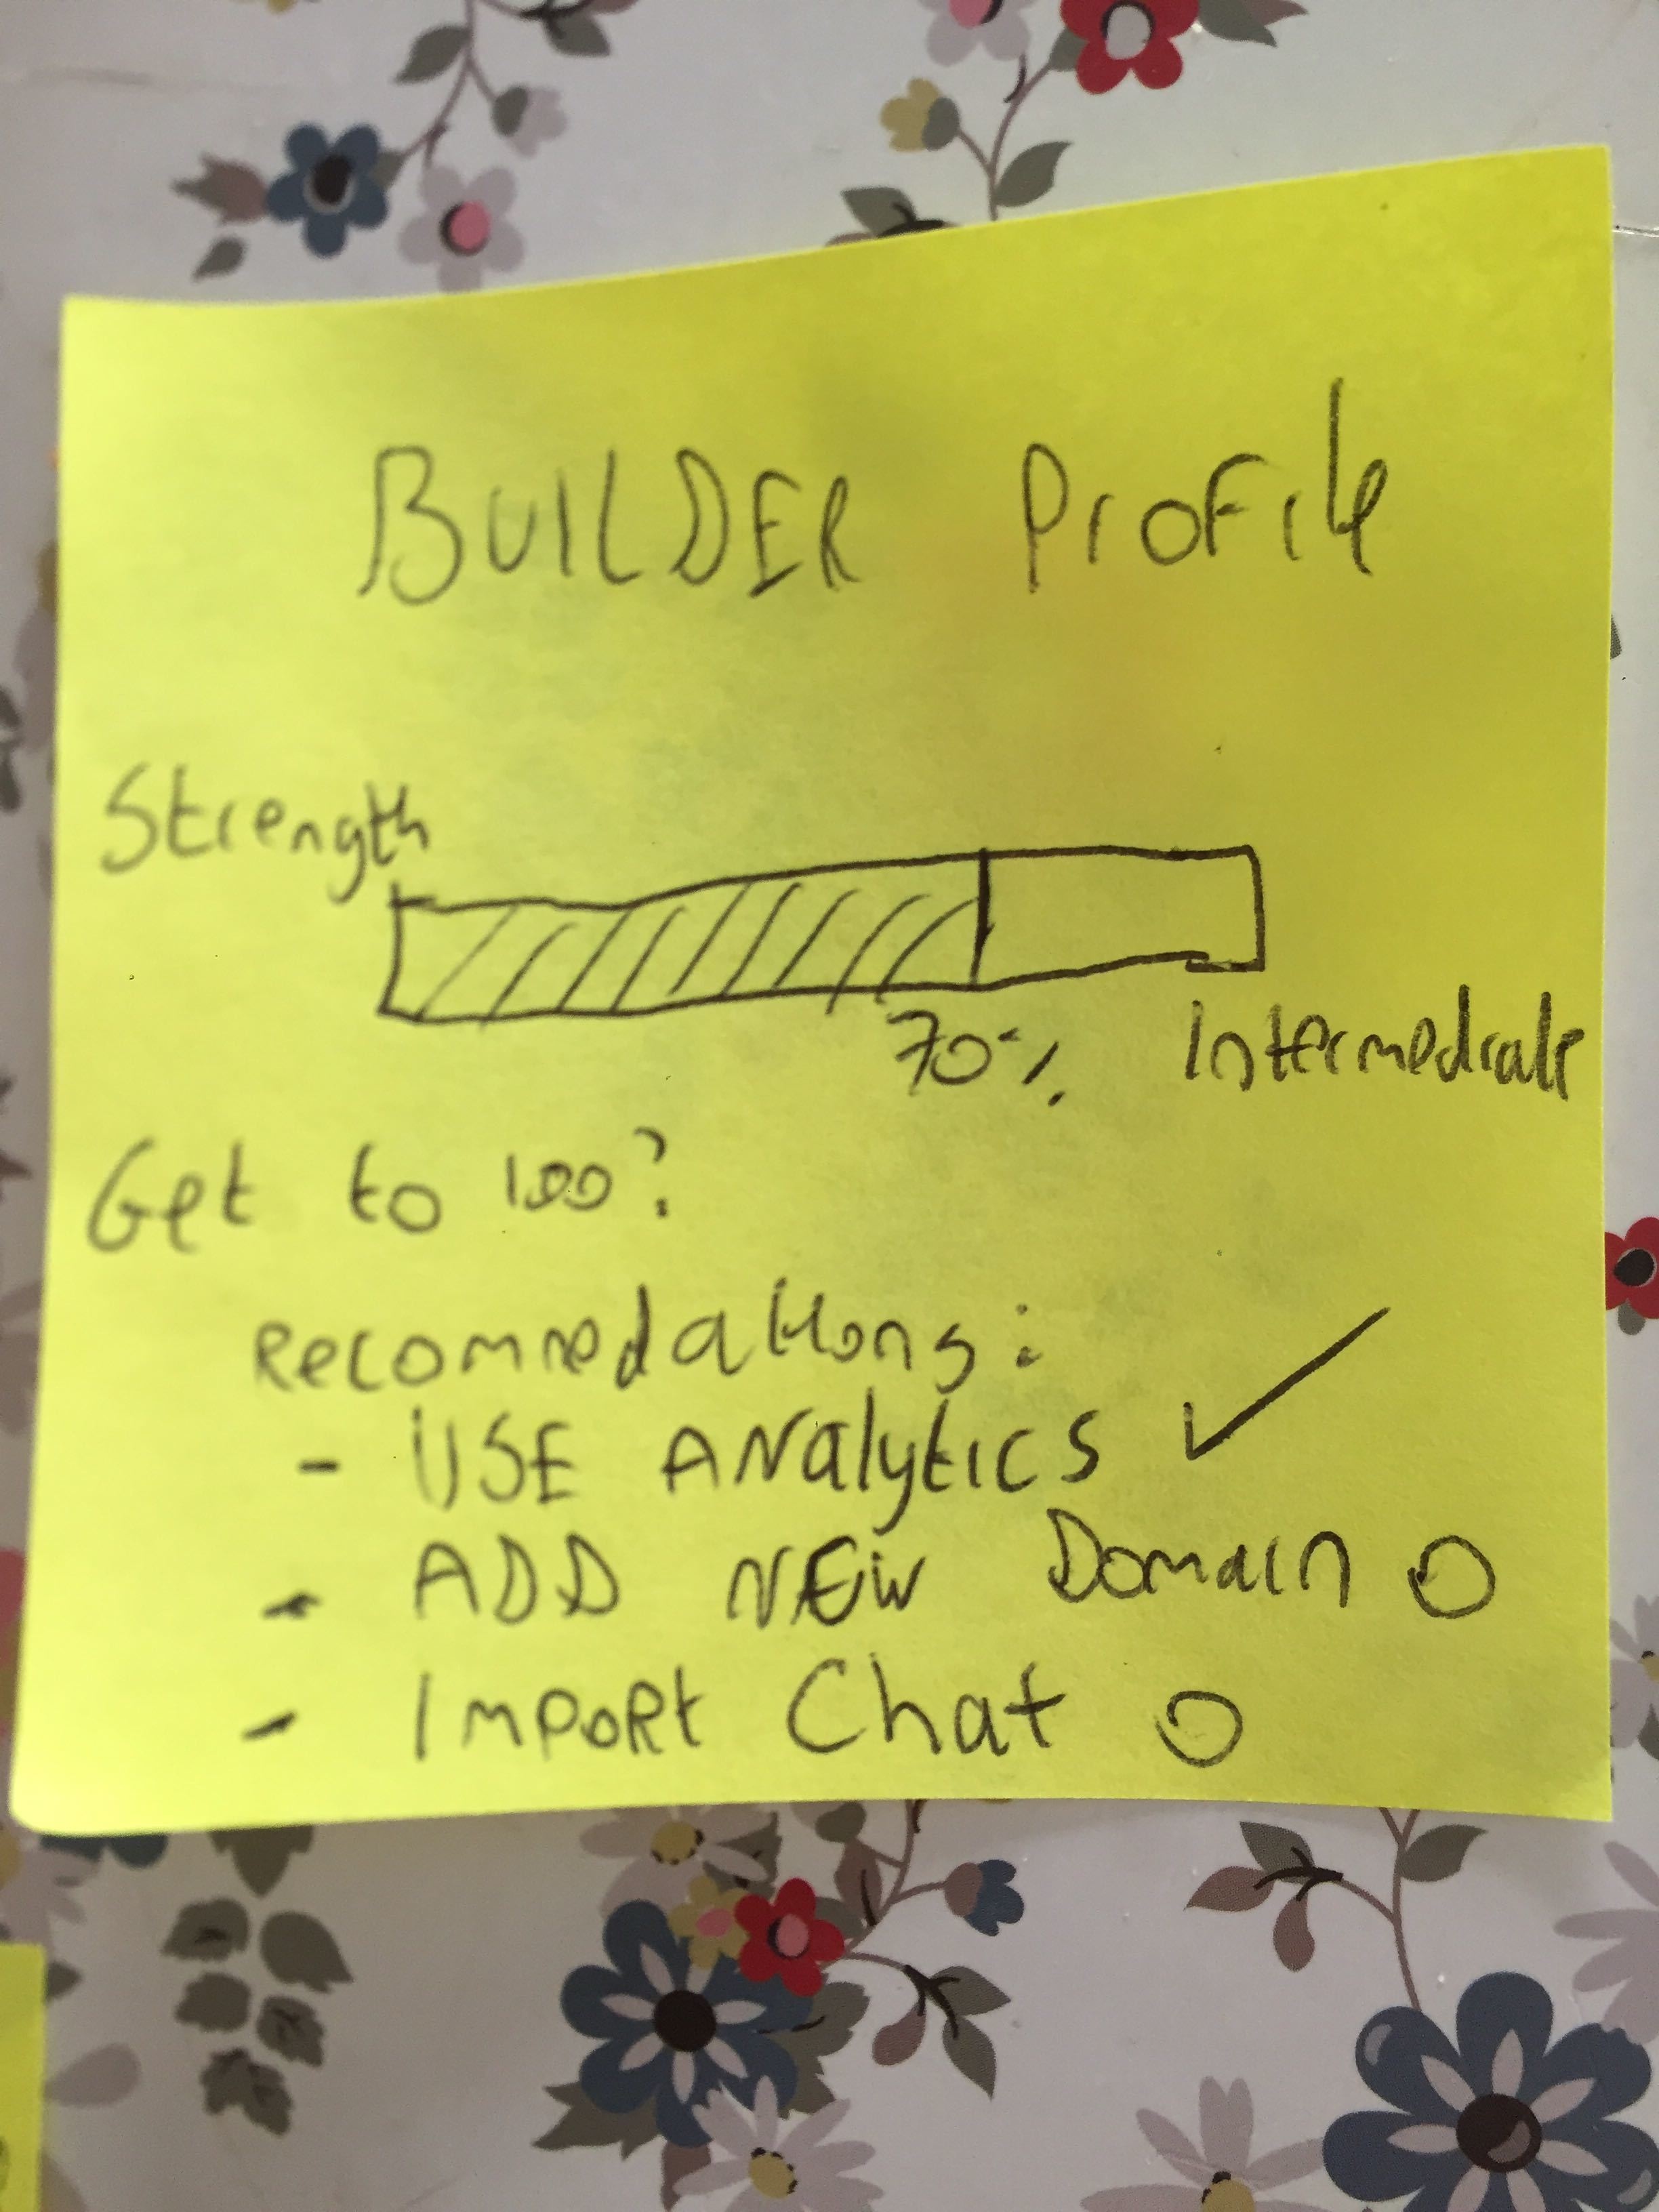 BUILDER Profile
Strength
70% Intermediate
Get to 100?
Recommedations:
- USE Analytics ✓
- ADD NEW Domain O
- Import Chat O